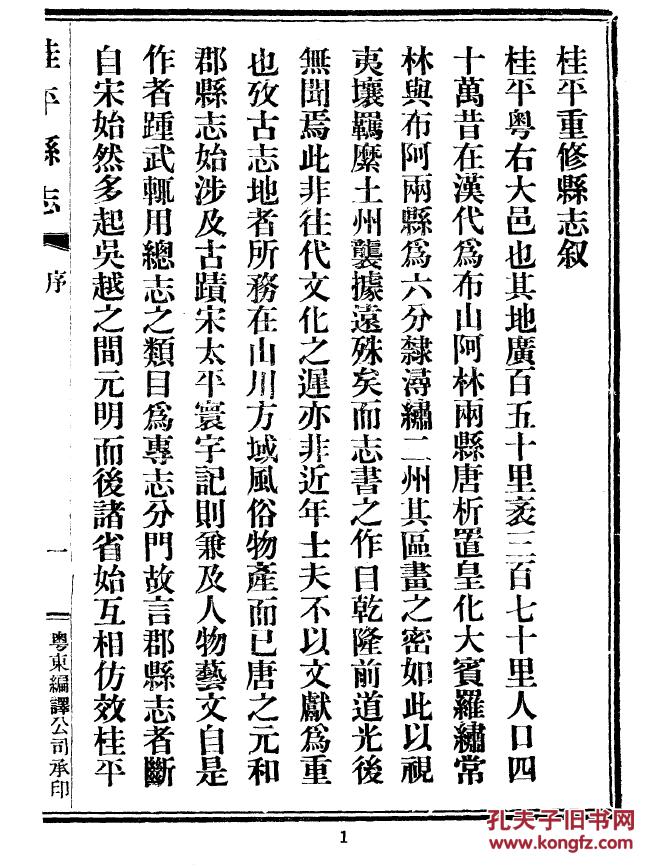 桂平重修縣志叙
桂平粵右大邑也其地廣百五十里袤三百七十里人口四
十萬昔在漢代為布山阿林兩縣唐析置皇化大賓羅繡常
林與布阿兩縣為六分隸潯繡二州其區畫之密如此以視
夷壤羈縻土州襲據遠殊矣而志書之作曰乾隆前道光後
無聞焉此非往代文化之遲亦非近年士夫不以文獻為重
也攷古志地者所務在山川方域風俗物產而已唐之元和
郡縣志始涉及古蹟宋太平寰宇記則兼及人物藝文自是
作者踵武輒用總志之類目為專志分門故言郡縣志者斷
自宋始然多起吳越之間元明而後諸省始互相仿效桂平
桂平縣志
序
一
粵東編譯公司承印
1
孔夫子旧书网
www.kongfz.com